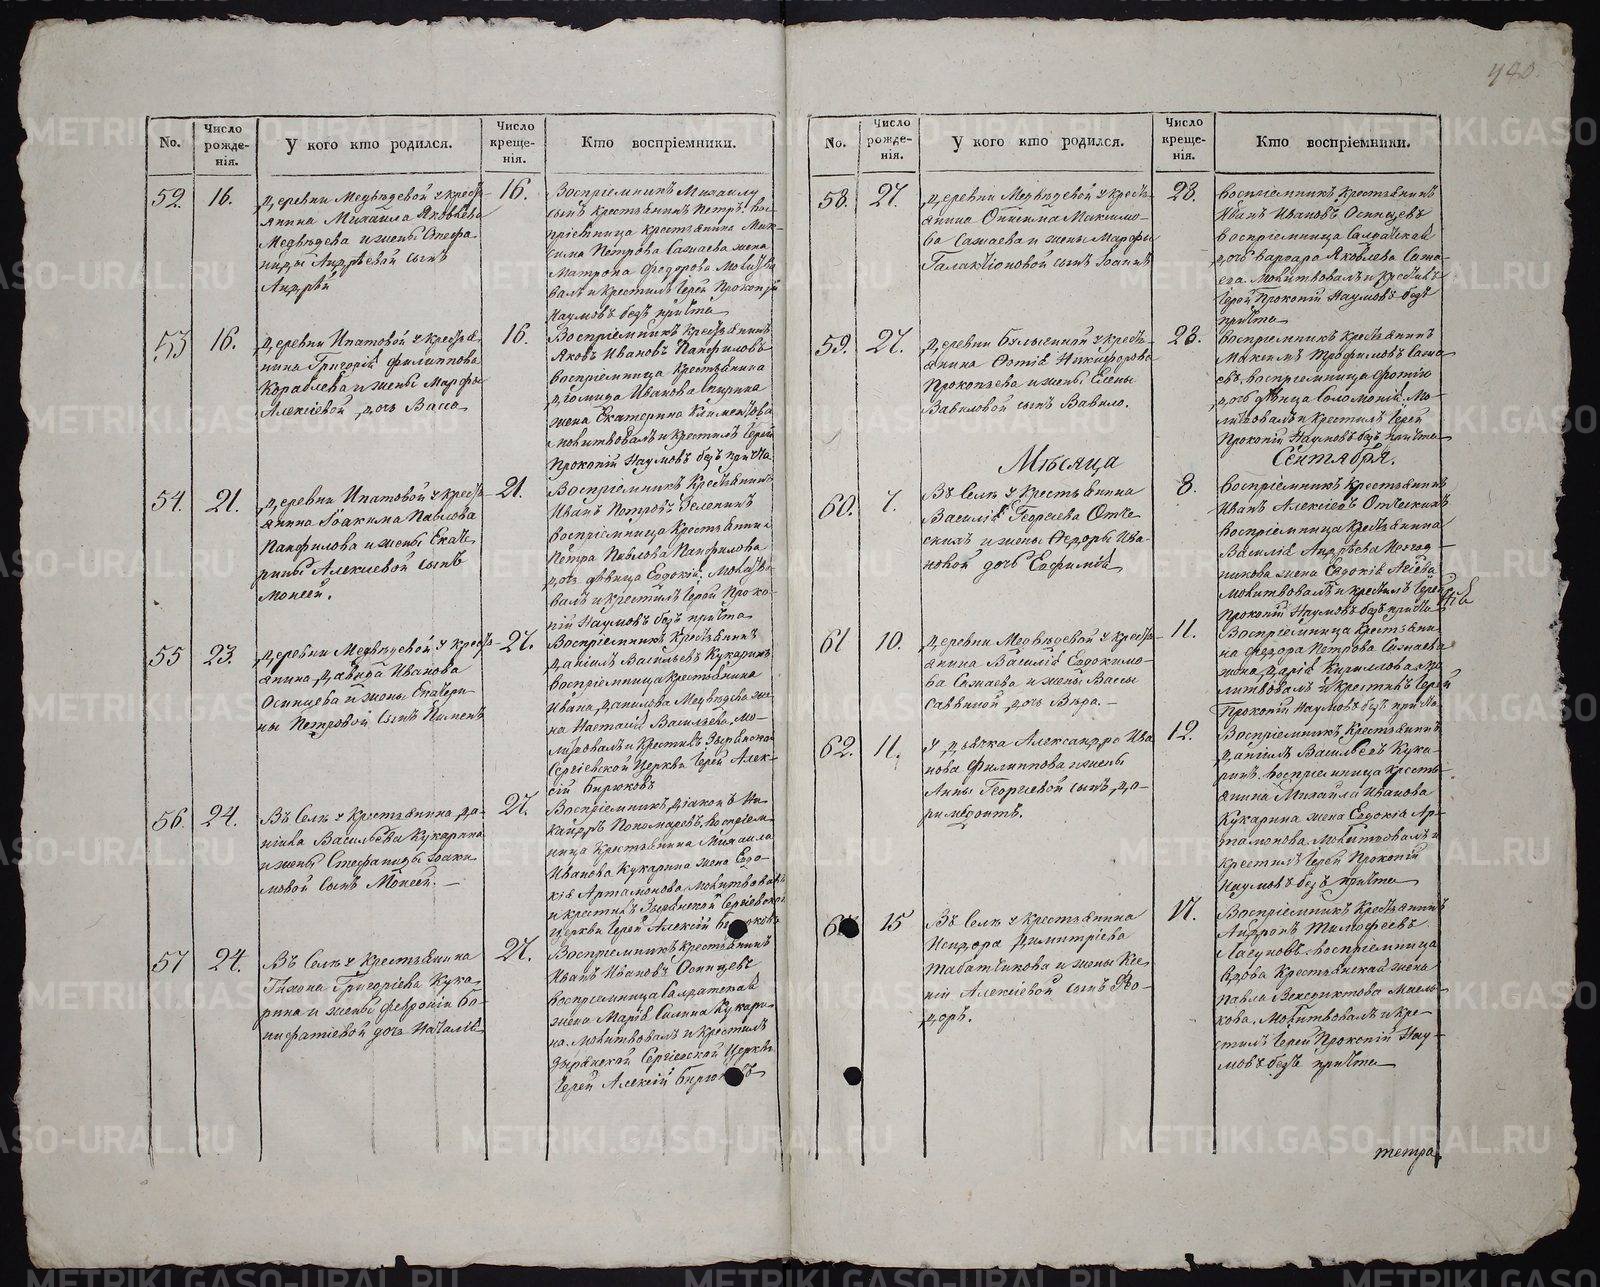 No.
Число рожде-нія.
У кого кто родился.
Число креще-нія.
Кто воспріемники.
52.
16.
деревни Медвѣдевой у кресть-
янина Михаила Яковлева
Медвѣдева и жены Стефа-
ниды Андреевой сынъ
Андрей
16.
Воспріемникъ Михаилу
сынъ крестьянинъ Петръ. Вос-
пріемница крестьянина Мак-
сима Петрова Сажаева жена
Матрона Федорова Молитво-
валъ и крестилъ Іерей Прокопій
Наумовъ безъ причта
53
16.
деревни Ипатовой у крестья-
нина Григорія Филиппова
Кораблева и жены Марфы
Алексіевой дочь Васса
16.
Воспріемникъ крестьянинъ
Яковъ Ивановъ Панфиловъ
воспріемница крестьянина
Іванова
жена Екатерина Климентова
молитвовалъ и крестилъ Іерей
Прокопій Наумовъ безъ причта
54.
21.
деревни Ипатовой у кресть-
янина Іоакима Павлова
Панфилова и жены Екате-
рины Алексіевой сынъ
Моисей.
21.
Воспріемникъ Крестьянинъ
Иванъ Петровъ Зеленинъ
воспріемница Крестьянина
Петра Павлова Панфилова
дочь дѣвица Евдокія. Молитво-
валъ и крестилъ Іерей Проко-
пій Наумовъ безъ причта
55
23.
деревни Медвѣдевой у кресть-
янина Давида Иванова
Осинцева и жены Екатери-
ны Петровой сынъ Пименъ
27.
Воспріемникъ Крестьянинъ
Даніилъ Васильевъ Кукаринъ
воспріемница Крестьянина
Ивана Данилова Медвѣдева же-
на Настасія Васильева. Мо-
литвовалъ и Крестилъ Зырянской
Сергіевской Церкви Іерей Алек-
сій Бирюковъ
56.
24.
Въ Селѣ у Крестьянина Да-
ніила Васильева Кукарина
и жены Стефаниды Іоаки-
мовой сынъ Моисей. —
27.
Воспріемникъ діаконъ Ни-
кандръ Пономаревъ. воспріем-
ница Крестьянина Михаила
Иванова Кукарина жена Евдо-
кія Артамонова. молитвовалъ
и крестилъ Зырянской Сергіевской
церкви Іерей Алексій Бирюковъ
57
24.
Въ Селѣ у Крестьянина
Тихона Григоріева Кука-
рина и жены Февроніи Бо-
нифатіевой дочь Наталія
27.
Воспріемникъ Крестьянинъ
Иванъ Ивановъ Осинцевъ
воспріемница Салдатская
жена Марія Кукари-
на. молитвовалъ и крестилъ
Зырянской Сергіевской Церкви
Іерей Алексій Бирюковъ
No.
Число рожде-нія.
У кого кто родился.
Число креще-нія.
Кто воспріемники.
58.
27.
деревни Медвѣдевой у кресть-
янина Онисима Максимо-
ва Сажаева и жены Марфы
Галактіоновой сынъ Іоаннъ
28.
воспріемникъ Крестьянинъ
Иванъ Ивановъ Осинцевъ
воспріемница Салдатская
дочь Варвара Яковлева Сажа-
ева. Молитвовалъ и крестилъ
Іерей Прокопій Наумовъ безъ
причта
59.
27.
деревни у кресть-
янина Фотія Никифорова
Прокопьева и жены Елены
Вавиловой сынъ Вавило.
28.
воспріемникъ Крестьянинъ
Максимъ Трофимовъ Сажа-
евъ. воспріемница
дочь дѣвица Соломонія. Мо-
литвовалъ и крестилъ Іерей
Прокопій Наумовъ безъ причта
Мѣсяца
Сентября.
60.
7.
Въ Селѣ у Крестьянина
Василія Георгіева Отте-
скихъ и жены Федоры Ива-
новой дочь Евфимія
8.
воспріемникъ Крестьянинъ
Иванъ Алексіевъ
воспріемница Крестьянина
Василія Андрѣева
жена Евдокія
молитвовалъ и крестилъ Іерей
Прокопій Наумовъ безъ причта
61
10.
деревни Медвѣдевой у кресть-
янина Василія Евдокимо-
ва Сажаева и жены Вассы
Саввиной дочь Вѣра. —
11.
Воспріемница Крестьяни-
на Федора Петрова Сажаева
жена Дарія Кириллова. мо-
литвовалъ и крестилъ Іерей
Прокопій Наумовъ безъ причта
62.
11.
у дьячка Александра Ива-
нова Филиппова и жены
Анны Георгіевой сынъ До-
римедонтъ.
12.
Воспріемникъ Крестьянинъ
Даніилъ Васильевъ Кука-
ринъ. воспріемница кресть-
янина Михаила Иванова
Кукарина жена Евдокія Ар-
тамонова. молитвовалъ и
крестилъ Іерей Прокопій
Наумовъ безъ причта
15
Въ Селѣ у Крестьянина
Исидора Димитріева
Табатчикова и жены Ксе-
ніи Алексіевой сынъ Фео-
доръ.
17.
Воспріемникъ Крестьянинъ
Андронъ Тимофеевъ
воспріемница
вдова Крестьянская жена
Павла Венедиктова Мась-
кова. Молитвовалъ и кре-
стилъ Іерей Прокопій Нау-
мовъ безъ причта
METRIKI.GASO-URAL.RU